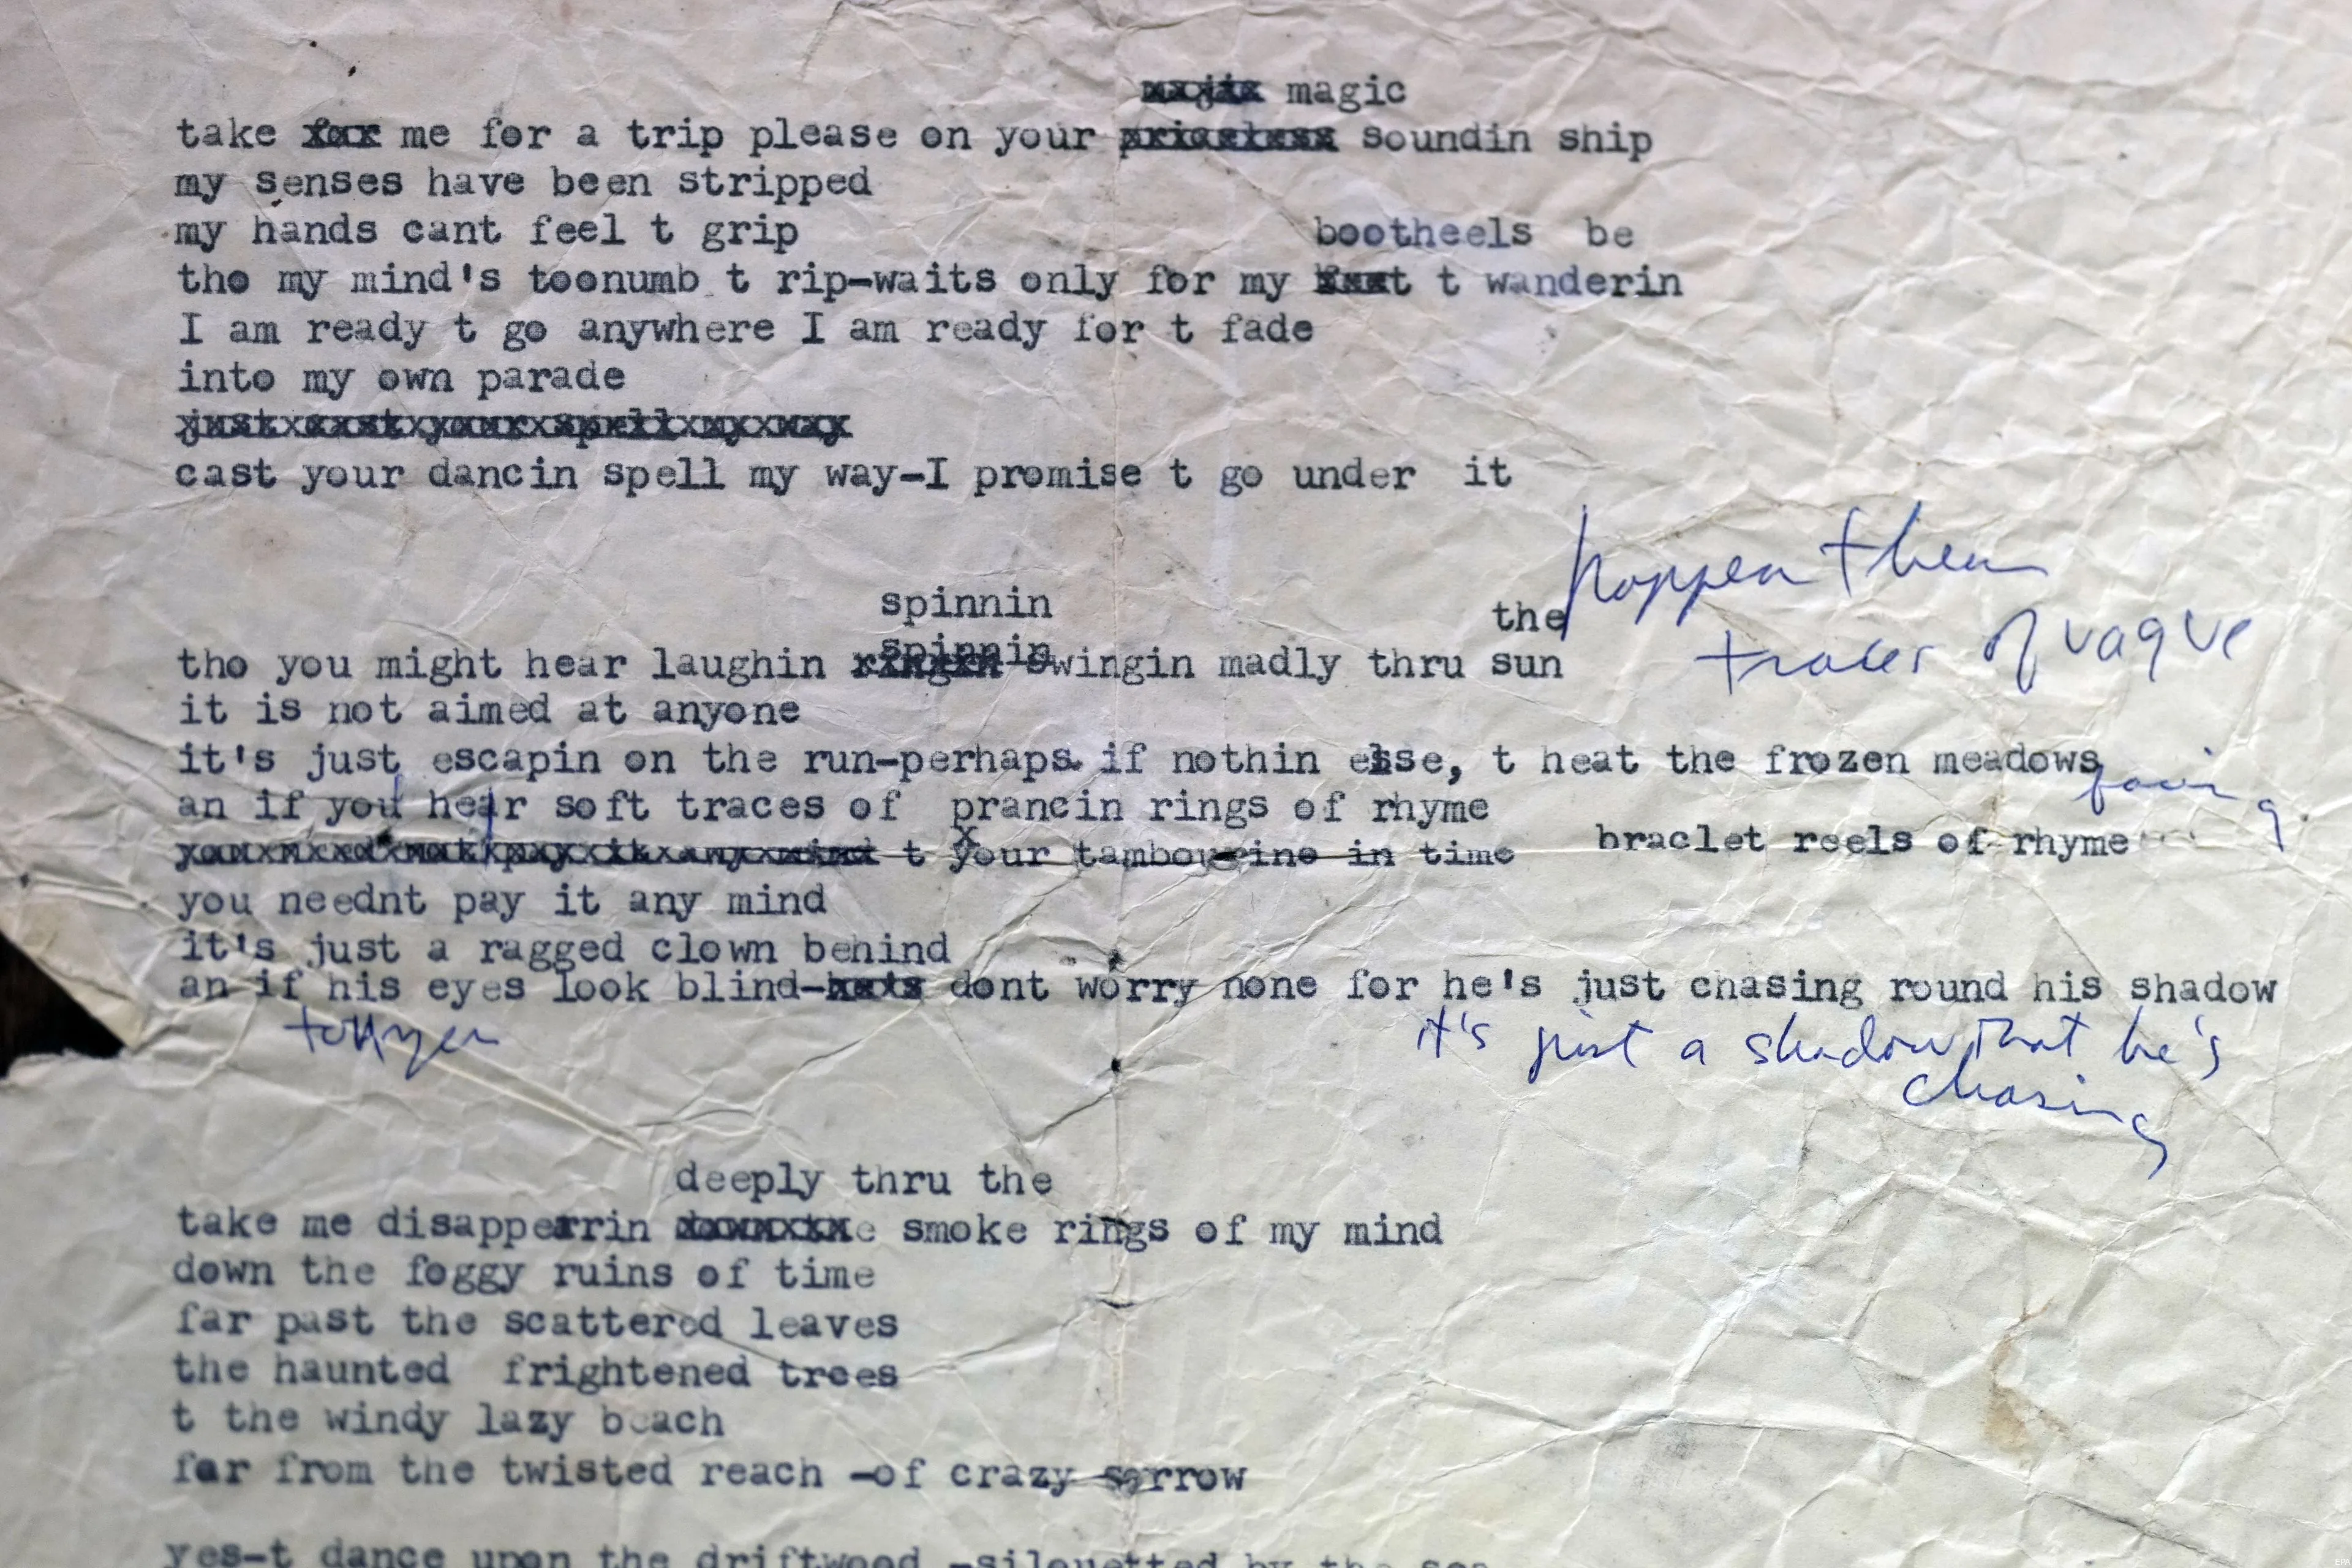 magic
take me for a trip please on your soundin ship
my senses have been stripped
my hands cant feel t grip
bootheels be
tho my mind's toonumb t rip-waits only for my t wanderin
I am ready t go anywhere I am ready for t fade
into my own parade
just cast your spell my way
cast your dancin spell my way-I promise t go under it
spinnin
the
spinnin
tho you might hear laughin swingin madly thru sun
traces of vague
it is not aimed at anyone
it's just escapin on the run-perhaps if nothin else, t heat the frozen meadows
facing
an if you hear soft traces of prancin rings of rhyme
t your tambourine in time braclet reels of rhyme
you neednt pay it any mind
it's just a ragged clown behind
an if his eyes look blind- dont worry none for he's just chasing round his shadow
it's just a shadow that he's
chasing
deeply thru the
take me disapperrin smoke rings of my mind
down the foggy ruins of time
far past the scattered leaves
the haunted frightened trees
t the windy lazy beach
far from the twisted reach -of crazy sorrow
yes-t dance upon the driftwood -silouetted by the sea